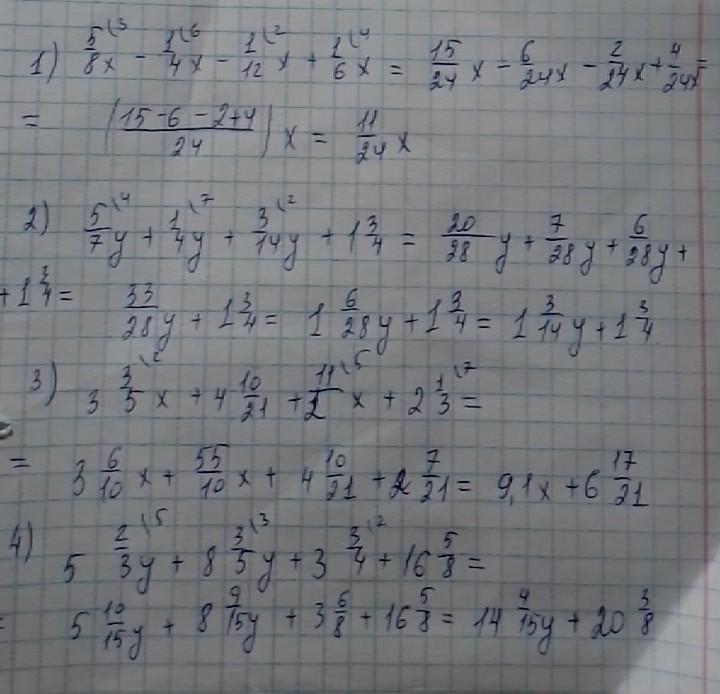 1) 5/8x \3 - 1/4x \6 - 1/12 x \2 + 1/6x \4 = 15/24 x - 6/24x - 2/24x + 4/24x =
= (15-6-2+4/24) x = 11/24 x
2) 5/7y \4 + 1/4y \7 + 3/14y \2 + 1 3/4 = 20/28 y + 7/28y + 6/28y +
+ 1 3/4 = 33/28y + 1 3/4 = 1 6/28y + 1 3/4 = 1 3/14y + 1 3/4
3) 3 3/5 \2 x + 4 10/21 + 11/2 \5 x + 2 1/3 \7 =
= 3 6/10 x + 55/10 x + 4 10/21 + 2 7/21 = 9,1x + 6 17/21
4) 5 2/3y \5 + 8 3/5y \3 + 3 3/4 \2 + 16 5/8 =
= 5 10/15y + 8 9/15y + 3 6/8 + 16 5/8 = 14 4/15y + 20 3/8